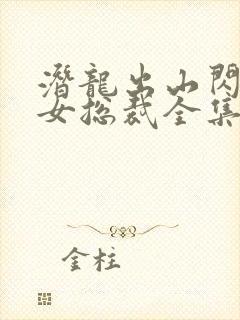 潛龍出山閃
女总裁全集
金柱